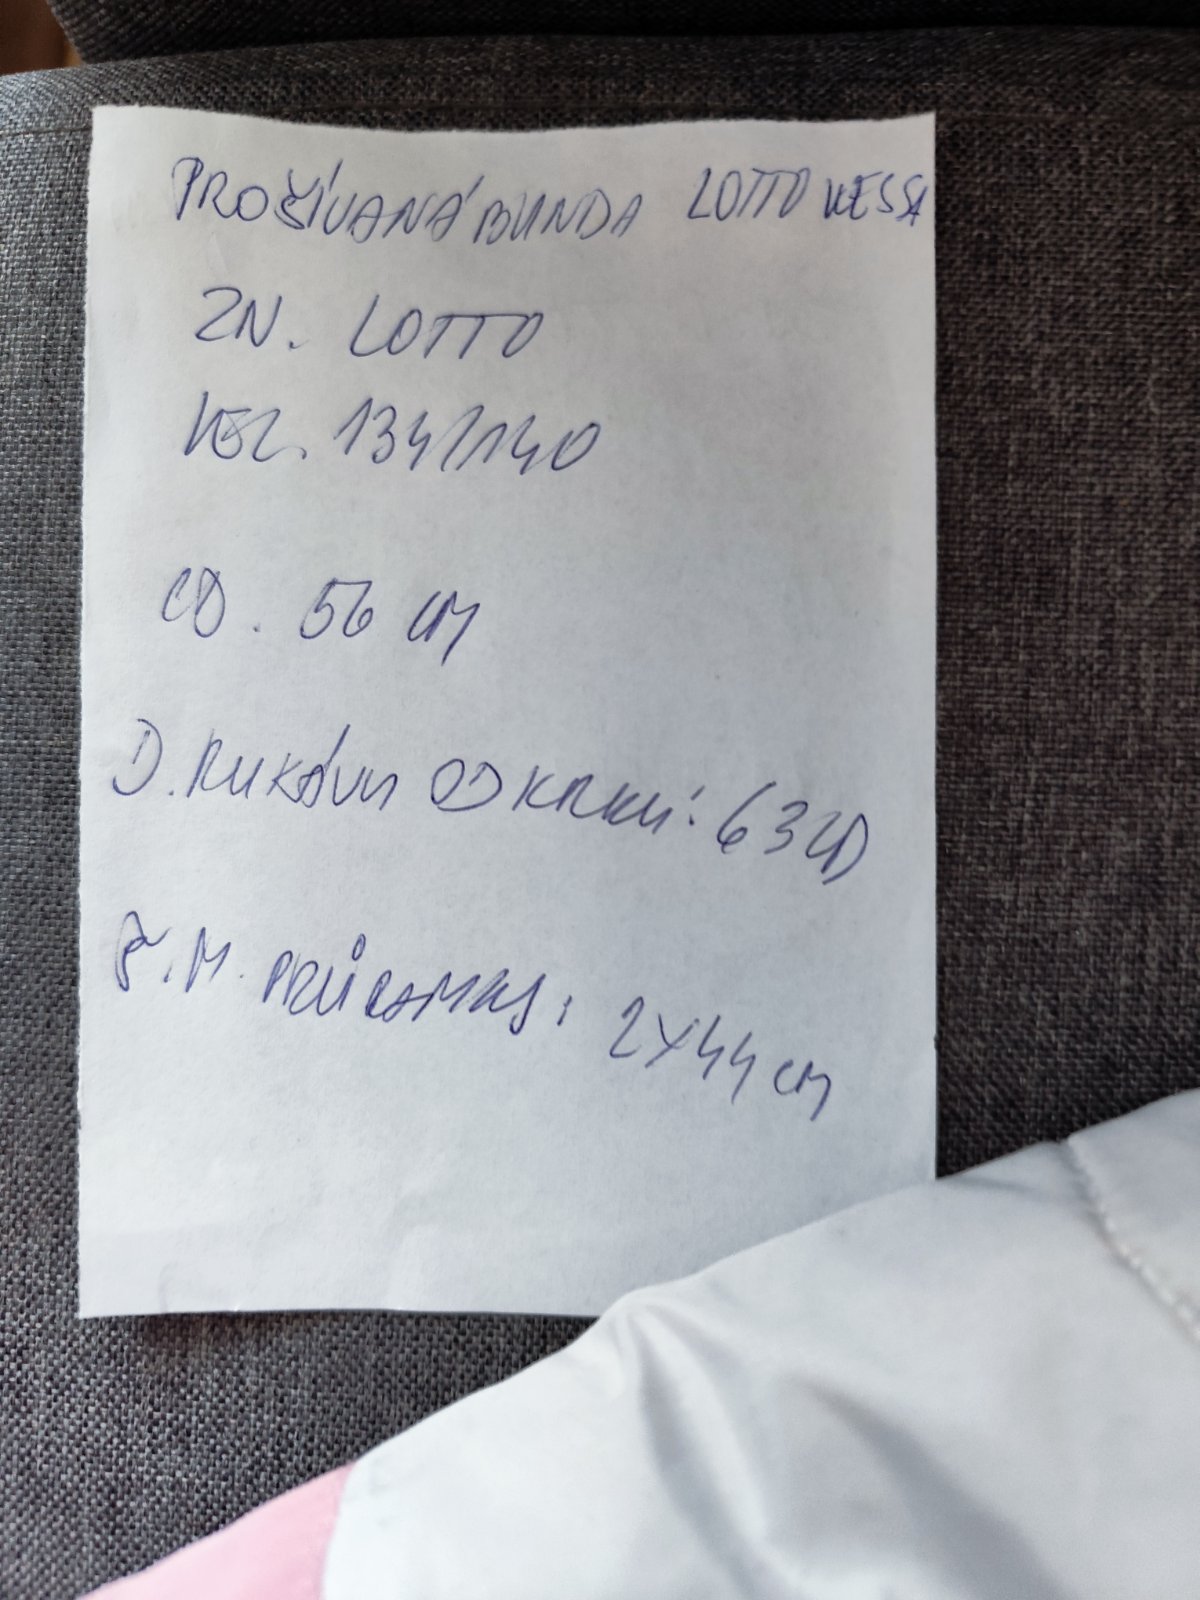 PROŠÍVANÁ BUNDA LOTTO KESSA
ZN. LOTTO
VEL. 134/140
CD. 56 CM
D. RUKÁVU OD KRKU: 63 CM
Š. M. PRŮRAMKY: 2X44 cm